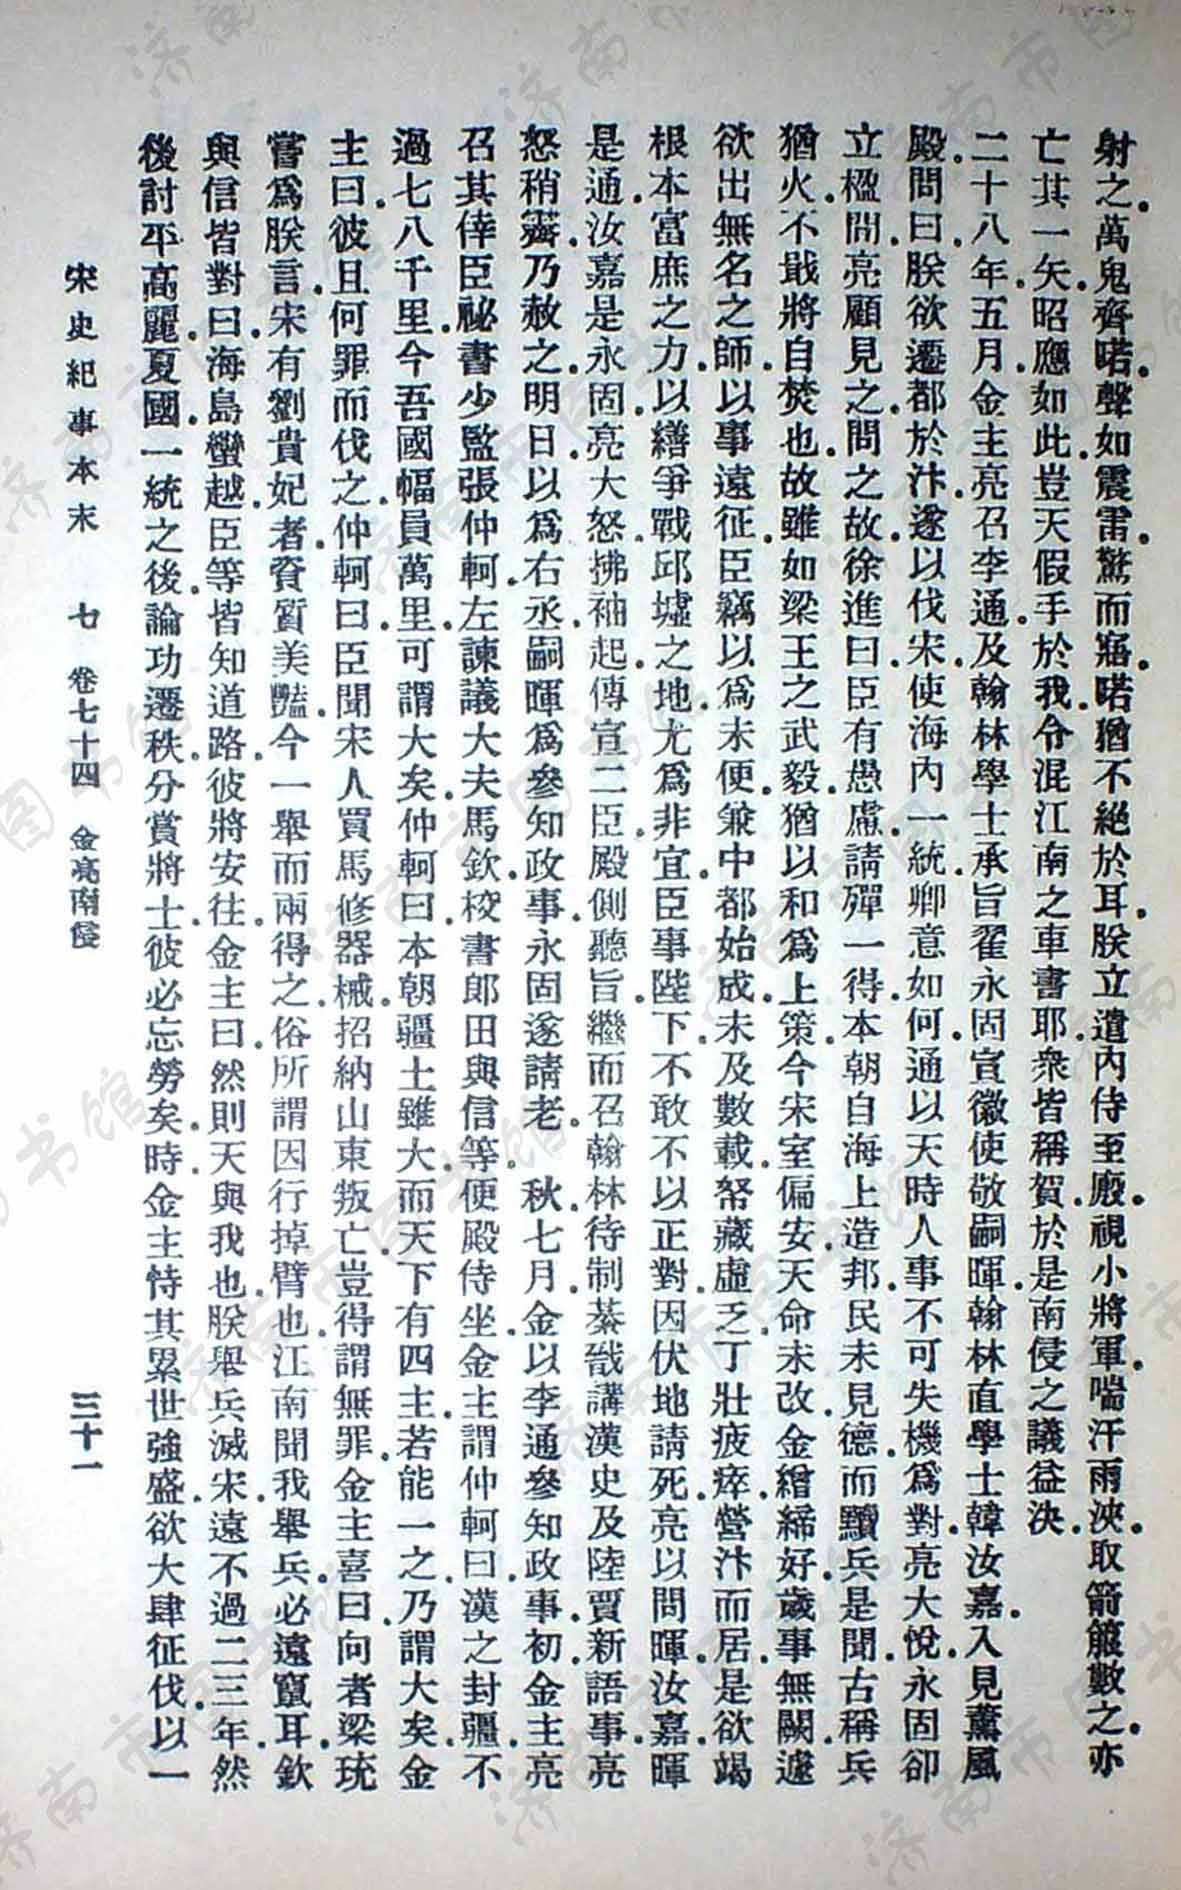 射之。萬鬼齊喏。聲如震雷。驚而寤。喏猶不絕於耳。朕立遣內侍至廄。視小將軍。喘汗雨浹。取箭箙數之。亦
亡其一矢。昭應如此。豈天假手於我。令混江南之車書耶。衆皆稱賀。於是南侵之議益決。
二十八年。五月。金主亮召李通。及翰林學士承旨翟永固。宣徽使敬嗣暉。翰林直學士韓汝嘉。入見薰風
殿。問曰。朕欲遷都於汴。遂以伐宋。使海內一統。卿意如何。通以天時人事。不可失機爲對。亮大悅。永固卻
立楹間。亮顧見之。問之故。徐進曰。臣有愚慮。請殫一得。本朝自海上造邦。民未見德。而黷兵是聞。古稱兵
猶火。不戢將自焚也。故雖如梁王之武毅。猶以和爲上策。今宋室偏安。天命未改。金繒締好。歲事無闕。遽
欲出無名之師。以事遠征。臣竊以爲未便。兼中都始成。未及數載。帑藏虛乏。丁壯疲瘁。營汴而居。是欲竭
根本富庶之力。以繕爭戰邱墟之地。尤爲非宜。臣事陛下。不敢不以正對。因伏地請死。亮以問暉。汝嘉。暉
是通。汝嘉是永固。亮大怒。拂袖起。傳宣二臣殿側聽旨。繼而召翰林待制綦戩講漢史及陸賈新語事。亮
怒稍霽。乃赦之。明日。以爲右丞。嗣暉爲參知政事。永固遂請老。　秋七月。金以李通參知政事。初。金主亮
召其倖臣祕書少監張仲軻。左諫議大夫馬欽。校書郎田與信等。便殿侍坐。金主謂仲軻曰。漢之封疆。不
過七八千里。今吾國幅員萬里。可謂大矣。仲軻曰。本朝疆土雖大。而天下有四主。若能一之。乃謂大矣。金
主曰。彼且何罪而伐之。仲軻曰。臣聞宋人買馬修器械。招納山東叛亡。豈得謂無罪。金主喜曰。向者梁珫
嘗爲朕言。宋有劉貴妃者。資質美豔。今一舉而兩得之。俗所謂因行掉臂也。江南聞我舉兵。必遠竄耳。欽
與信皆對曰。海島蠻越。臣等皆知道路。彼將安往。金主曰。然則天與我也。朕舉兵滅宋。遠不過二三年。然
後討平高麗。夏國。一統之後。論功遷秩。分賞將士。彼必忘勞矣。時金主恃其累世強盛。欲大肆征伐。以一
宋史紀事本末　七　卷七十四　金亮南侵　三十一